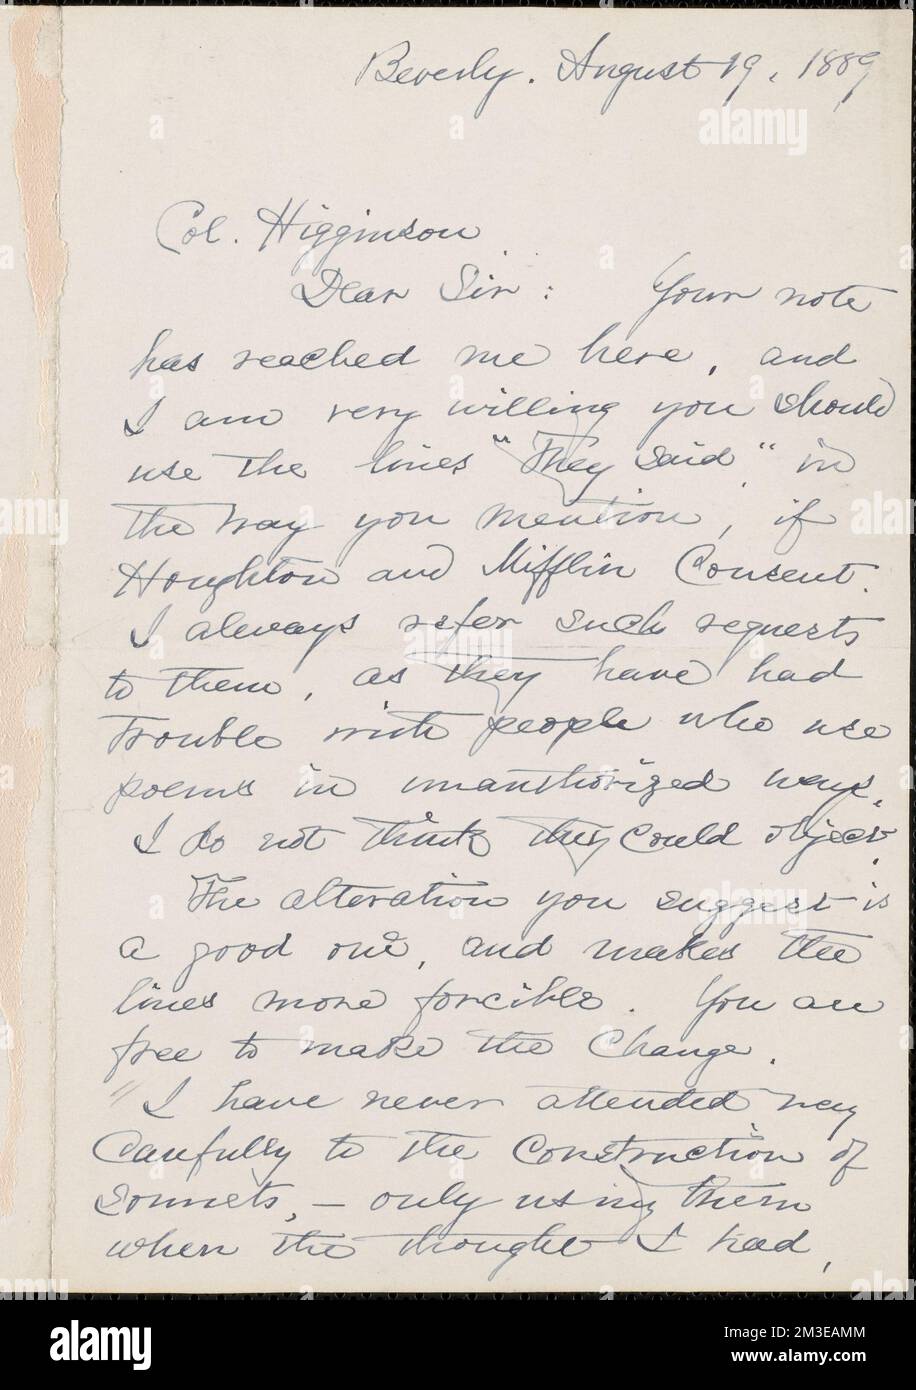 Beverly. August 19, 1889
Col. Higginson
Dear Sir: Your note
has reached me here, and
I am very willing you should
use the lines "They said" in
the way you mention, if
Houghton and Mifflin Consent.
I always refer such requests
to them, as they have had
trouble with people who use
poems in unauthorized ways.
I do not think they could object.
The alteration you suggest is
a good one, and makes the
lines more forcible. You are
free to make the change.
"I have never attended very
Carefully to the Construction of
Sonnets, — only using them
when the thought I had,
alamy
Image ID: 2M3EAMM
www.alamy.com